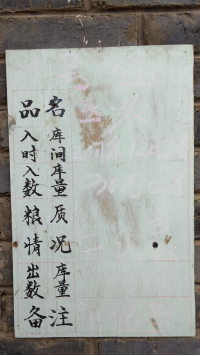 品名
入库
时间
入库
数量
粮质
情况
出库
数量
备注